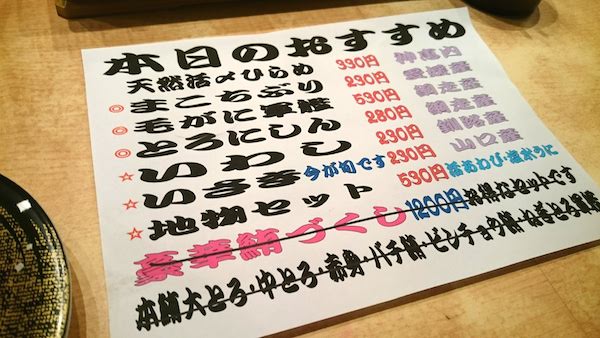 本日のおすすめ
天然活〆ひらめ 330円 神恵内
◎まこちぶり 230円
◎毛がに軍艦 530円 網走産
◎とろにしん 280円 網走産
☆いわし 230円 釧路産
☆いさき 今が旬です 230円 山口産
☆地物セット 530円 活あわび・塩水うに
豪華鮪づくし 1200円 お得なセットです
本鮪大とろ・中とろ・赤身・バチ鮪・ビンチョウ鮪・ねぎとろ軍艦